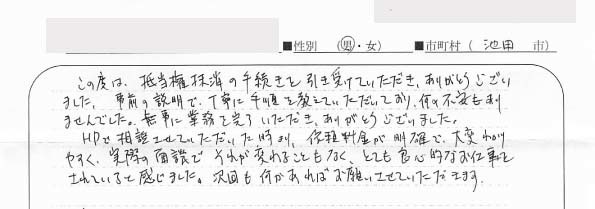 ■性別 (男・女) ■市町村 ( 池田 市)
この度は、抵当権抹消の手続きを引き受けていただき、ありがとうござい
ました。事前の説明で、丁寧に手順を教えていただいており、何の不安もあり
ませんでした。無事に業務を完了いただき、ありがとうございました。
HPで相談させていただいた時より、依頼料金が明確で、大変わかり
やすく、実際の面談でそれが変わることもなく、とても良心的なお仕事を
されていると感じました。次回も何かあればお願いさせていただきます。